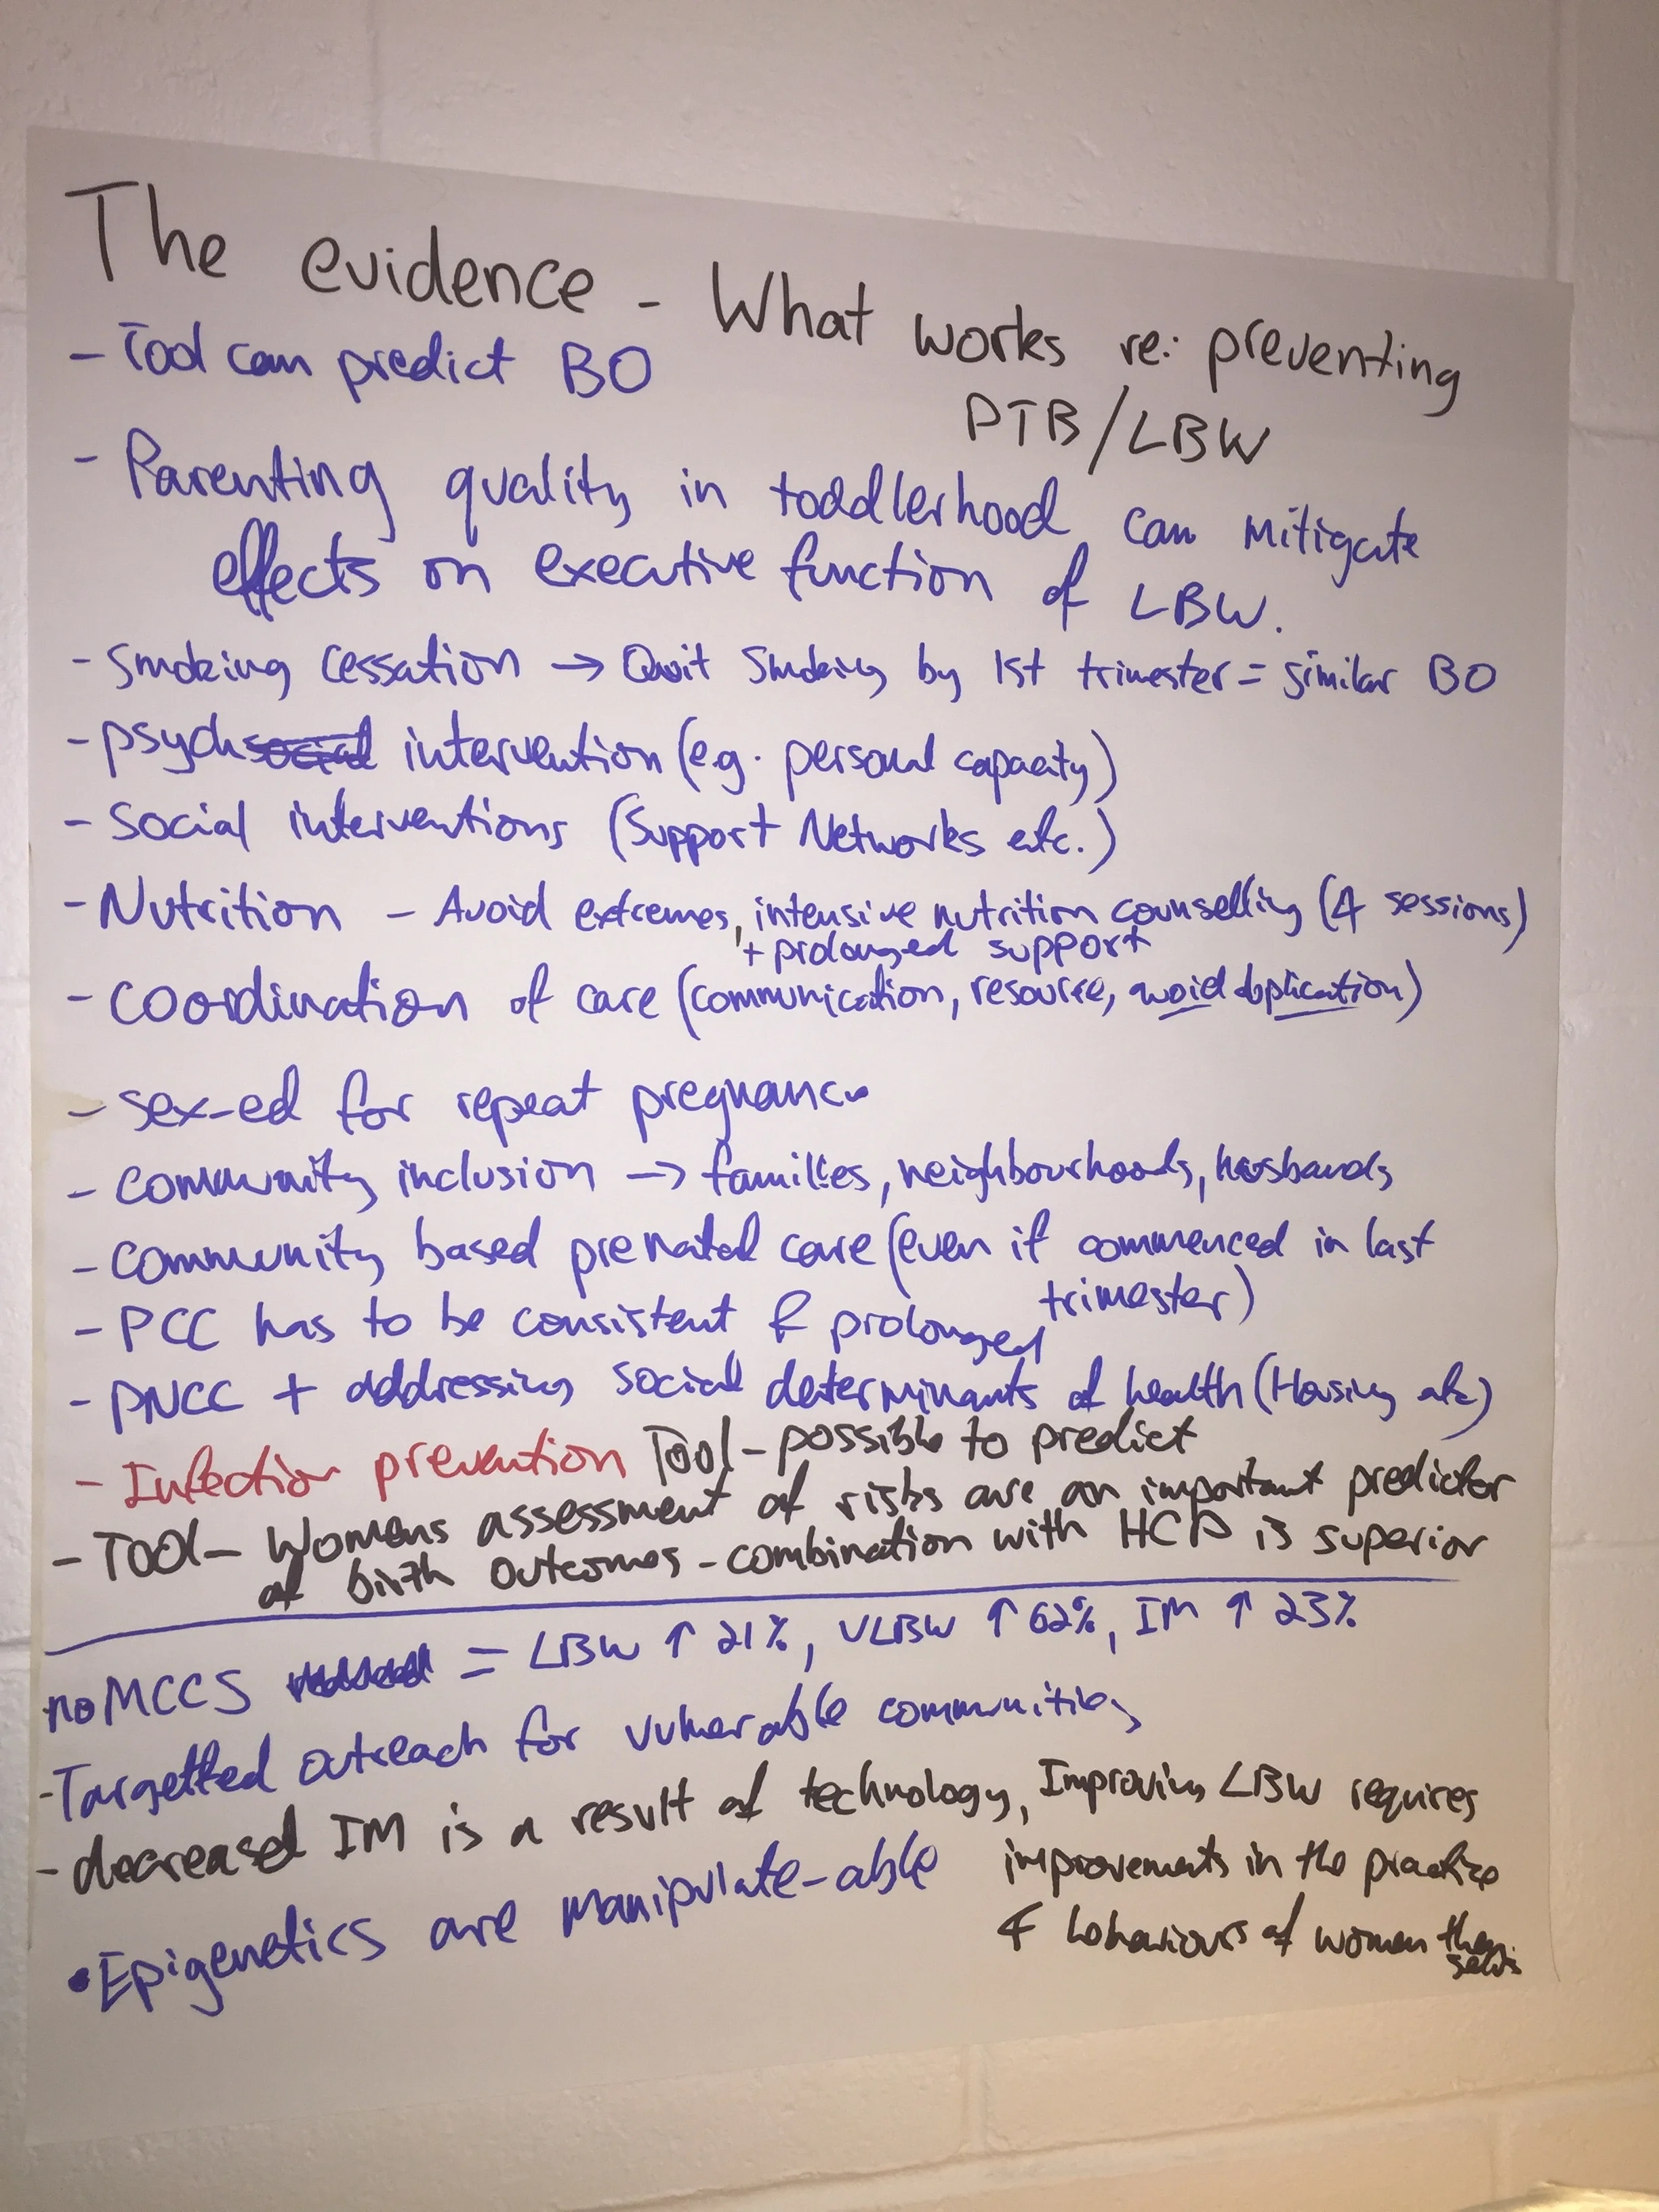 The evidence - What works re: preventing
PTB/LBW
- Tool can predict BO
- Parenting quality in toddlerhood can mitigate
effects on executive function of LBW.
- Smoking cessation → Quit Smoking by 1st trimester = similar BO
- psych intervention (e.g. personal capacity)
- Social interventions (Support Networks etc.)
- Nutrition - Avoid extremes, intensive nutrition counselling (4 sessions)
+ prolonged support
- Coordination of care (communication, resource, avoid duplication)
- sex-ed for repeat pregnancy
- community inclusion → families, neighbourhoods, husbands
- community based prenatal care (even if commenced in last
trimester)
- PCC has to be consistent & prolonged
- PNCC + addressing social determinants of health (Housing etc)
- Infection prevention Tool - possible to predict
- Tool - Womens assessment of risks are an important predictor
of birth outcomes - combination with HCP is superior
no MCCS = LBW ↑ 21%, VLBW ↑ 62%, IM ↑ 23%
- Targetted outreach for vulnerable communities
- decreased IM is a result of technology, Improving LBW requires
improvements in the practice
& behaviours of women themselves
• Epigenetics are manipulate-able